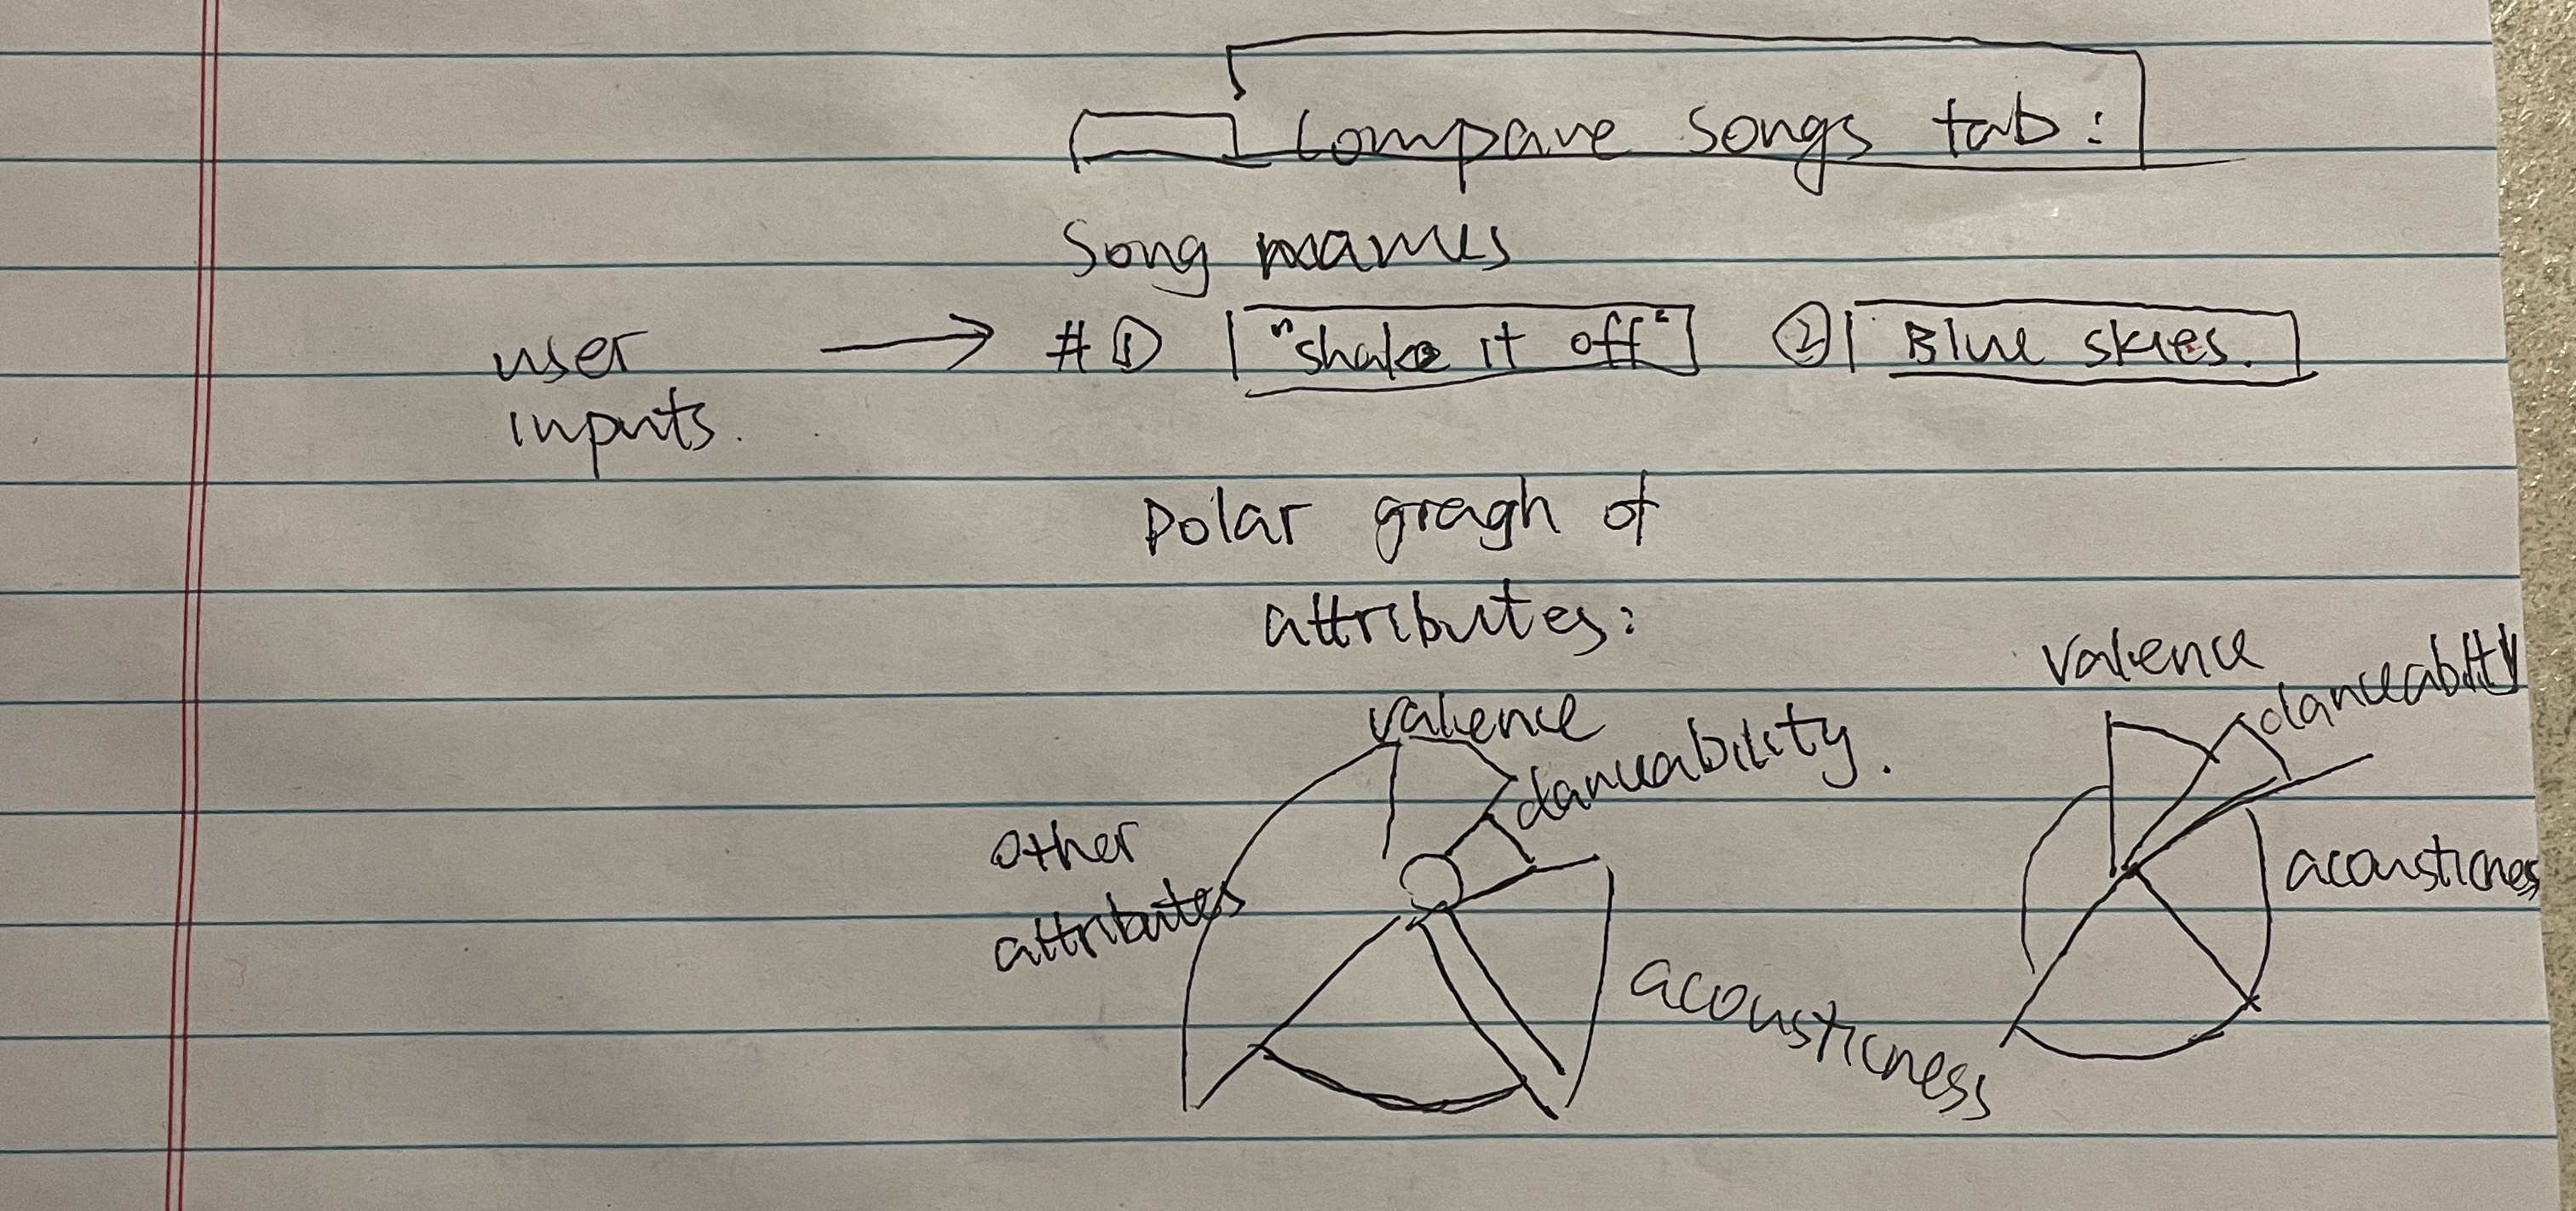 Compare songs tab:
Song names
user inputs. → #① "shake it off" ② Blue skies.
Polar gragh of
attributes:
valence
danceability.
other
attributes
acousticness
valence
danceability
acousticness